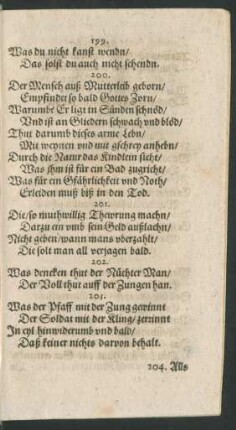 199.
Was du nicht kanst wendn/
Das solst du auch nicht schendn.
200.
Der Mensch auß Mutterleib geborn/
Empfindet so bald Gottes Zorn/
Warumb? Er ligt in Sünden schnöd/
Vnd ist an Gliedern schwach vnd blöd/
Thut darumb dieses arme Lebn/
Mit weynen vnd mit gschrey anhebn/
Durch die Natur das Kindlein sicht/
Was jhm ist für ein Bad zugricht/
Was für ein Gfährlichkeit vnd Noth/
Erleiden muß biß in den Tod.
201.
Die/so muthwillig Thewrung machn/
Darzu ein vmb sein Geld außlachn/
Nicht geben/wann mans vberzahlt/
Die solt man all verjagen bald.
202.
Was dencken thut der Nüchter Man/
Der Voll thut auff der Zungen han.
203.
Was der Pfaff mit der Zung gewinnt
Der Soldat mit der Kling/zerrinnt
In eyl hinwiderumb vnd bald/
Daß keiner nichts darvon behalt.
204. Alls